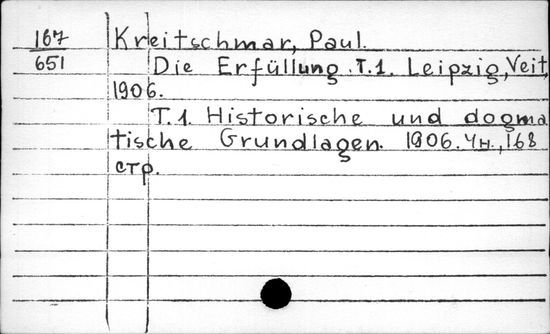 167 Kreitschmar, Paul.
651 Die Erfüllung. T.1. Leipzig, Veit,
1906.
T.1. Historische und dogma
tische Grundlagen. 1906. 4н., 168
стр.